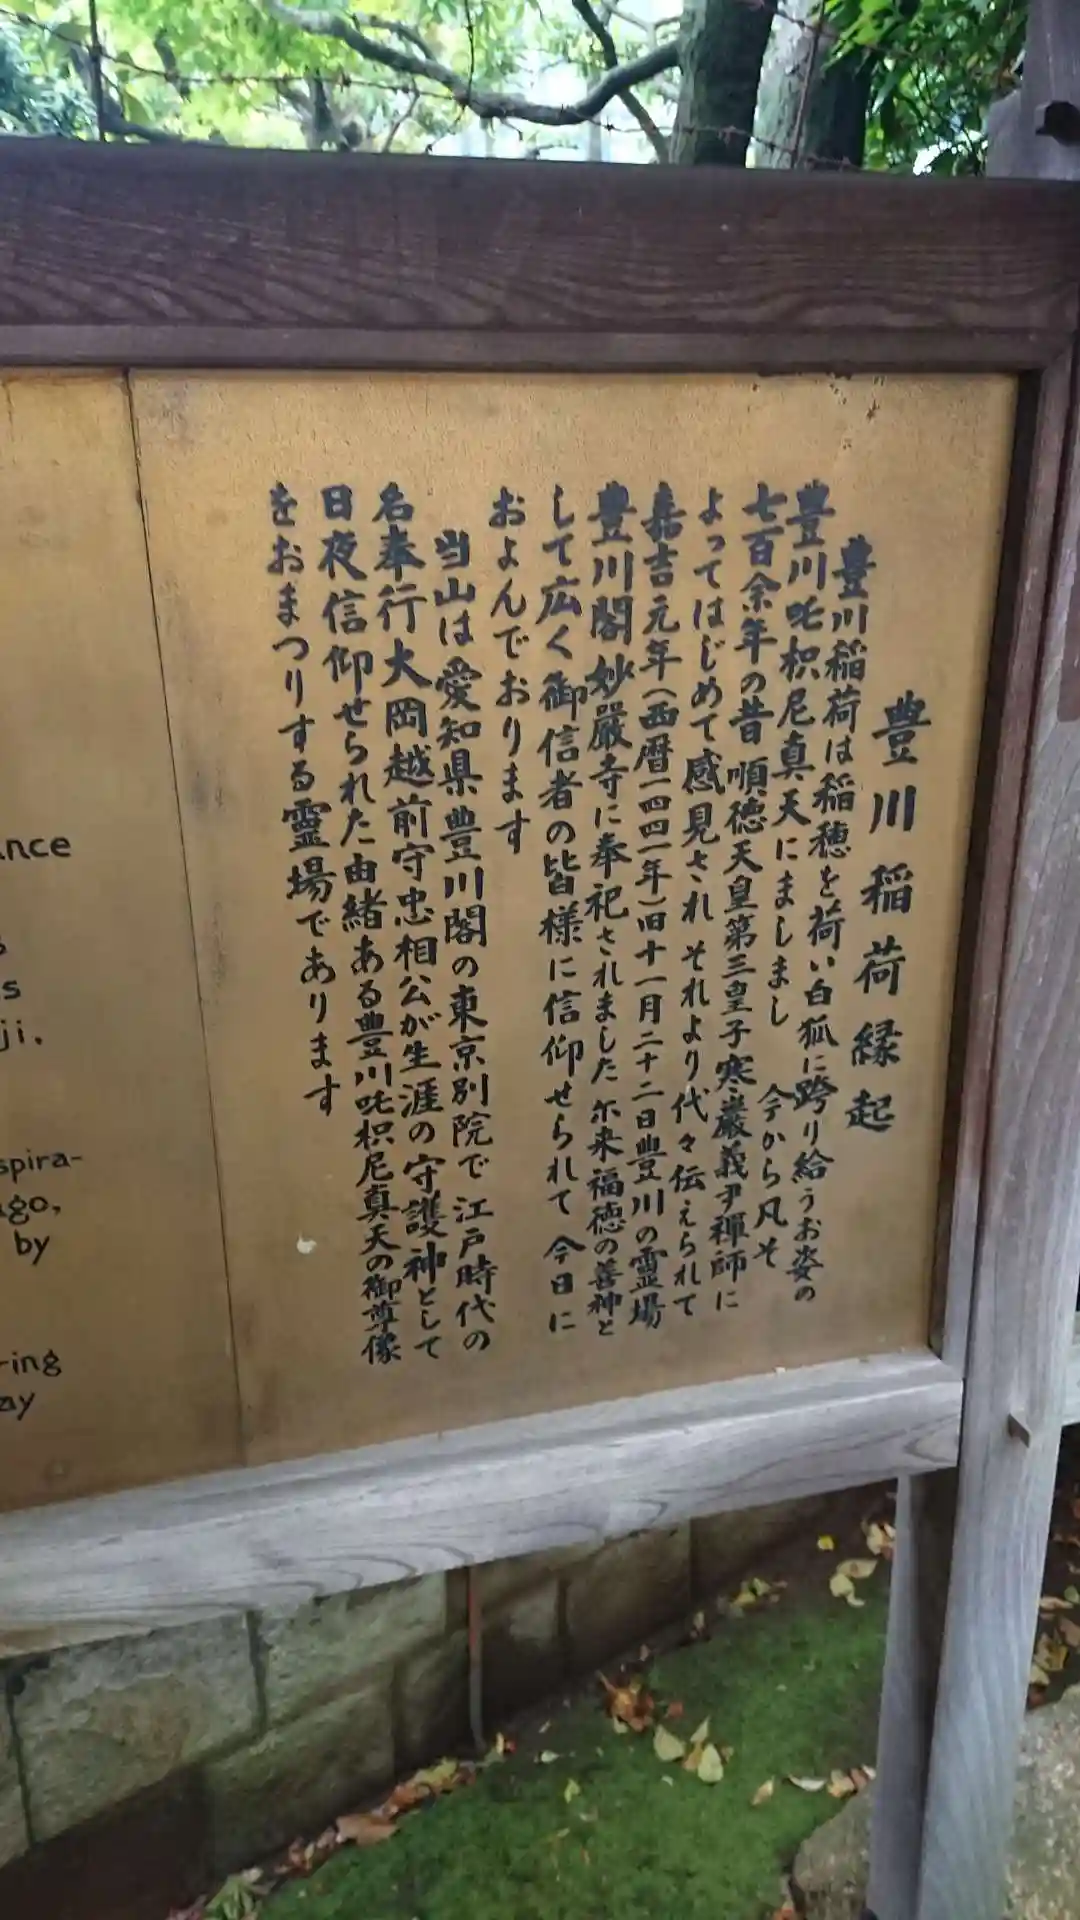 豊川稲荷縁起
豊川稲荷は稲穂を荷い白狐に跨り給うお姿の
豊川吒枳尼真天にましまし 今から凡そ
七百余年の昔 順徳天皇第三皇子寒巌義尹禅師に
よってはじめて感見され それより代々伝えられて
嘉吉元年(西暦一四四一年)旧十一月二十二日豊川の霊場
豊川閣妙嚴寺に奉祀されました 尓来福徳の善神と
して広く御信者の皆様に信仰せられて 今日に
およんでおります
当山は愛知県豊川閣の東京別院で 江戸時代の
名奉行大岡越前守忠相公が生涯の守護神として
日夜信仰せられた由緒ある豊川吒枳尼真天の御尊像
をおまつりする霊場であります
ance
s
ji.
spira-
ago,
by
ring
ay